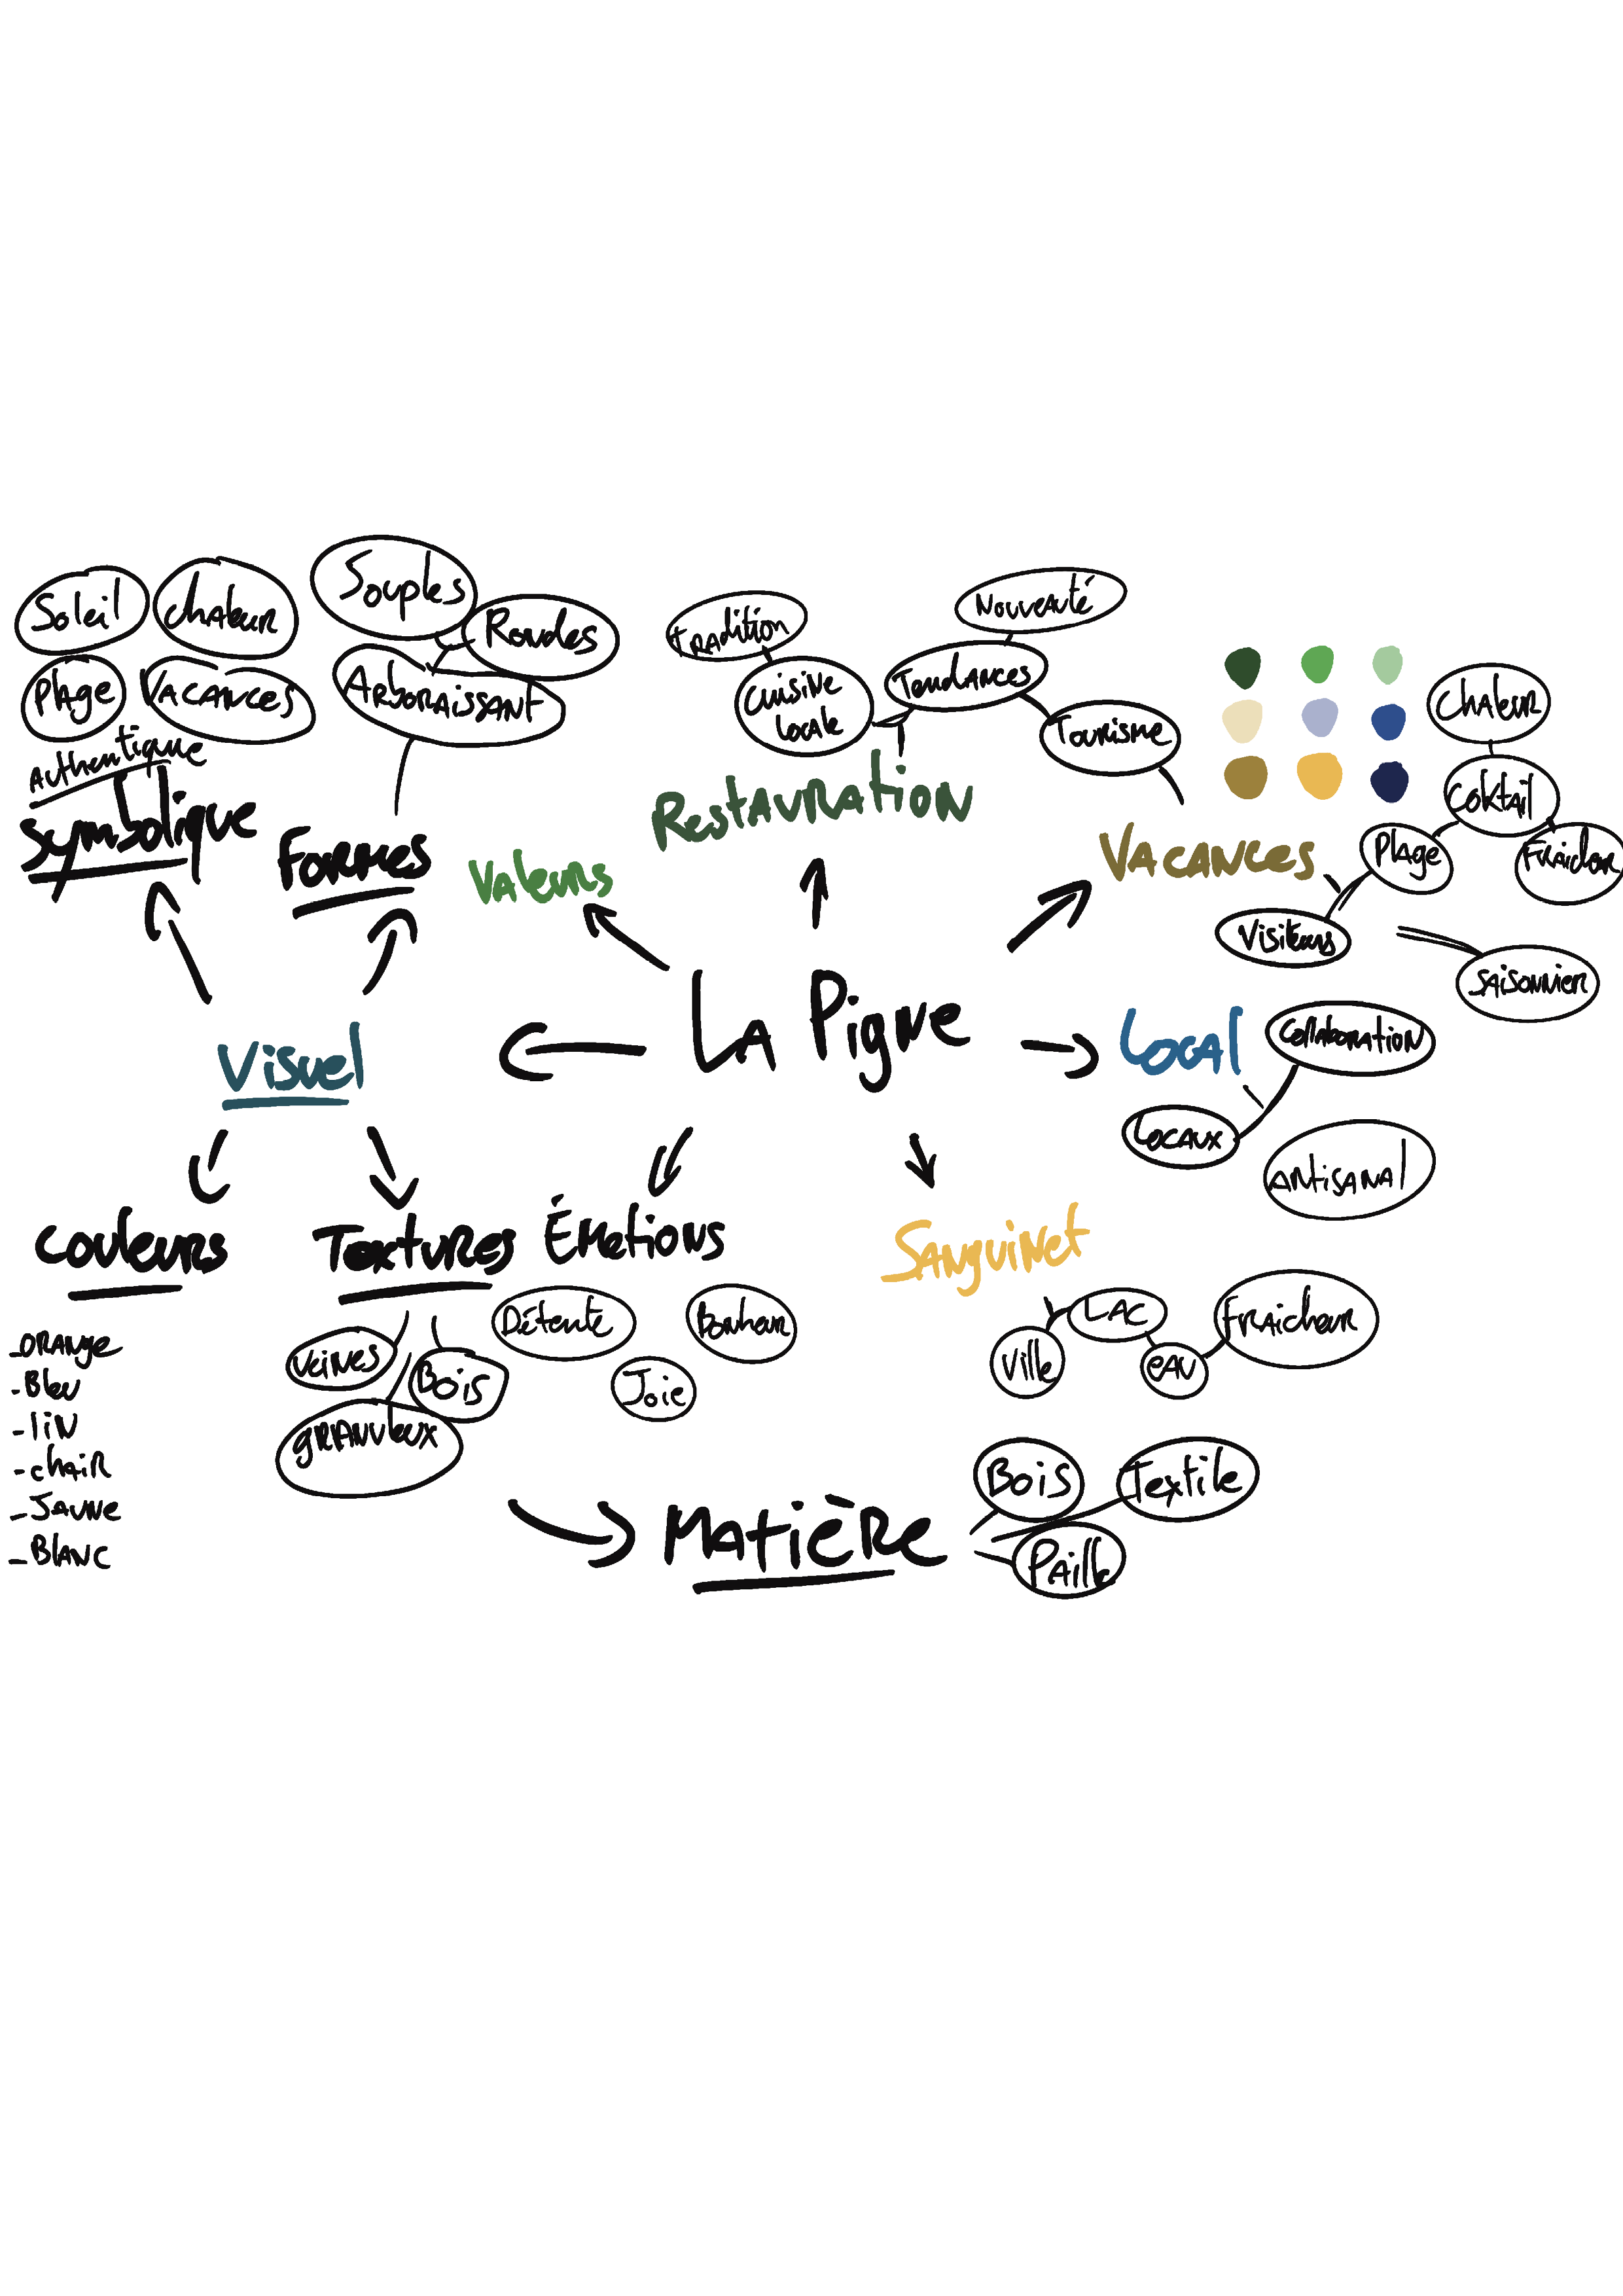 Soleil
chaleur
Plage
Vacances
Authentique
Symbolique
Souples
Rondes
Arboraissant
Formes
Valeurs
Tradition
Cuisine
locale
Tendances
Nouveauté
Tourisme
Restauration
Vacances
Chaleur
Coktail
Plage
Fraicheur
Visiteurs
Saisonnier
La Pigne
Visuel
Local
Collaboration
Locaux
Artisanal
Couleurs
- Orange
- Bleu
- lin
- chair
- Jaune
- Blanc
Textures
Veines
Bois
granuleux
Émotions
Détente
Bonheur
Joie
Sanguinet
Ville
Lac
eau
Fraicheur
Matière
Bois
Textile
Paille